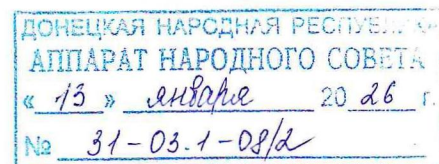 ДОНЕЦКАЯ НАРОДНАЯ РЕСПУБЛИКА
АППАРАТ НАРОДНОГО СОВЕТА
« 13 » января 20 26 г.
№ 31-03.1-08/2